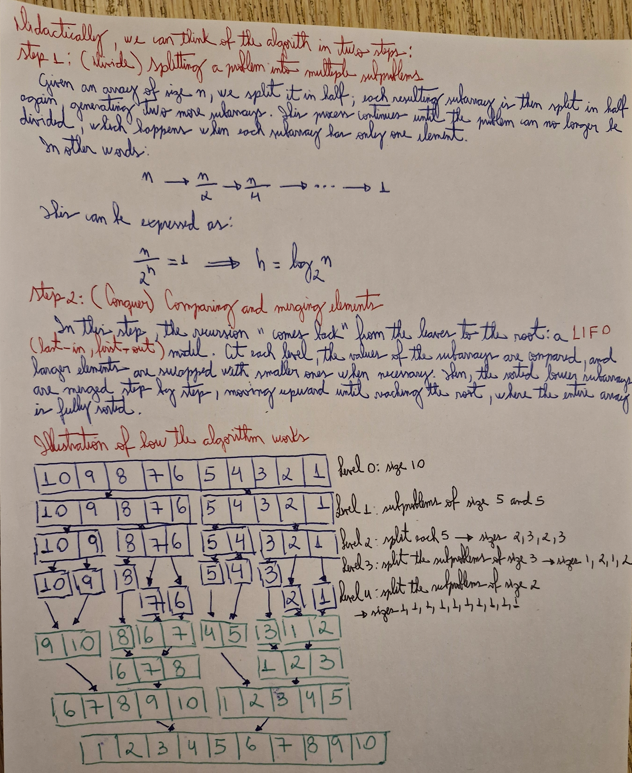 Didactically, we can think of the algorith in two steps:
step 1: (divide) splitting a problem into multiple subproblems
Given an array of size n, we split it in half; each resulting subarray is then split in half
again, generating two more subarrays. This process continues until the problem can no longer be
divided, which happens when each subarray has only one element.
In other words:
n → n/2 → n/4 → ··· → 1
This can be expressed as:
n/2^h = 1 ⟹ h = log₂ n
step 2: (Conquer) Comparing and merging elements
In this step, the recursion "comes back" from the leaves to the root: a LIFO
(last-in, first-out) model. At each level, the values of the subarrays are compared, and
larger elements are swapped with smaller ones when necessary. Then, the sorted lower subarrays
are merged step by step, moving upward until reaching the root, where the entire array
is fully sorted.
Illustration of how the algorithm works
10 9 8 7 6 5 4 3 2 1 Level 0: size 10
10 9 8 7 6 5 4 3 2 1 Level 1: subproblems of size 5 and 5
10 9 8 7 6 5 4 3 2 1 Level 2: split each 5 → sizes 2, 3, 2, 3
Level 3: split the subproblems of size 3 → sizes 1, 2, 1, 2
10 9 8 5 4 3
7 6 2 1 Level 4: split the subproblems of size 2
→ sizes 1, 1, 1, 1, 1, 1, 1, 1, 1, 1
9 10 8 6 7 4 5 3 1 2
6 7 8 1 2 3
6 7 8 9 10 1 2 3 4 5
1 2 3 4 5 6 7 8 9 10